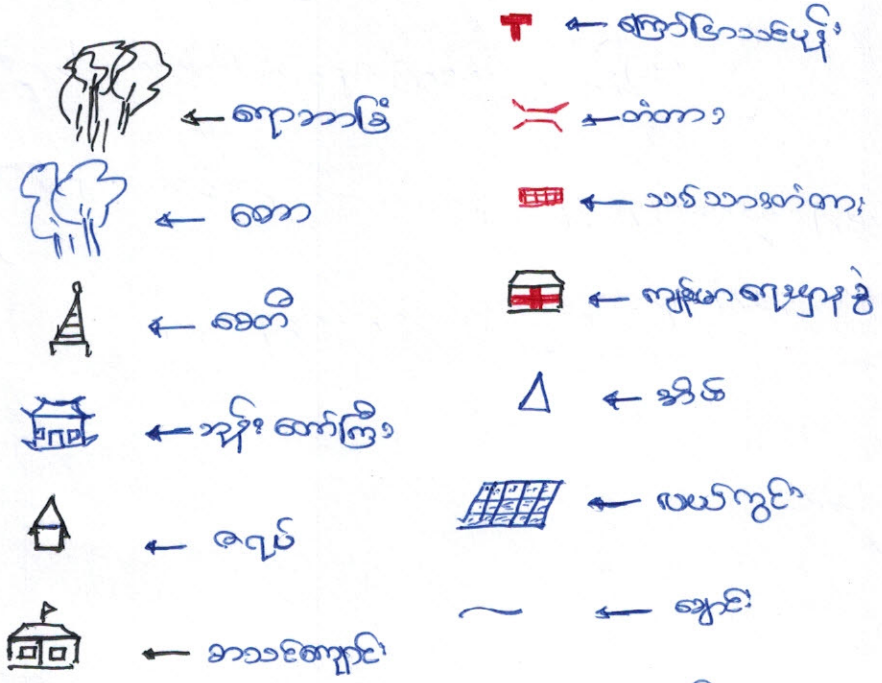 ရော်ဘာခြံ
တော
စေတီ
ဘုန်းတော်ကြီး
ဇရပ်
စာသင်ကျောင်း
ကြော်ငြာသင်ပုန်း
တံတား
သစ်သားတံတား
ကျန်းမာရေးဌာနခွဲ
အိမ်
လယ်ကွင်း
ချောင်း